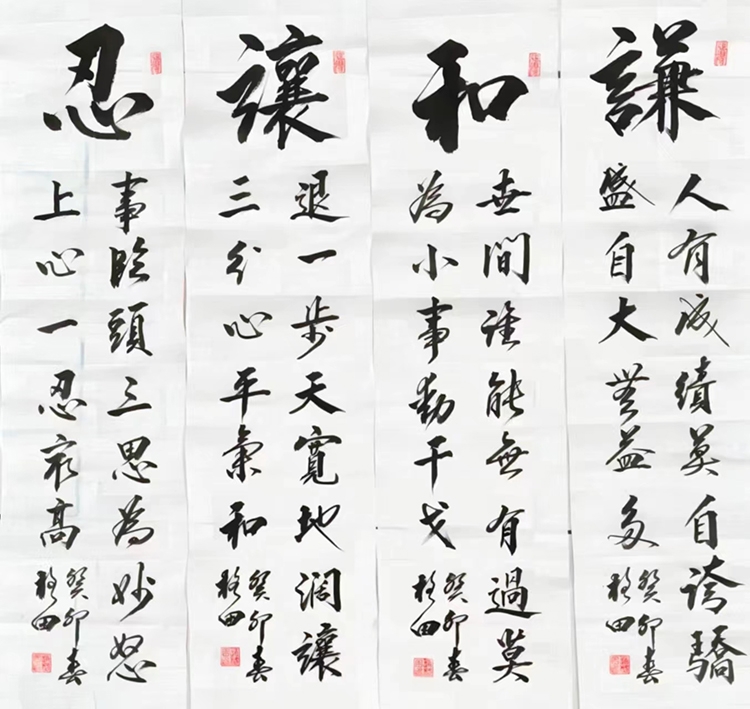 謙
人有成績莫自誇驕
盛自大無益多
癸卯春
田
和
世間誰能無有過莫
為小事動干戈
癸卯春
田
讓
退一步天寬地闊讓
三分心平氣和
癸卯春
田
忍
事臨頭三思為妙怒
上心一忍最高
癸卯春
田